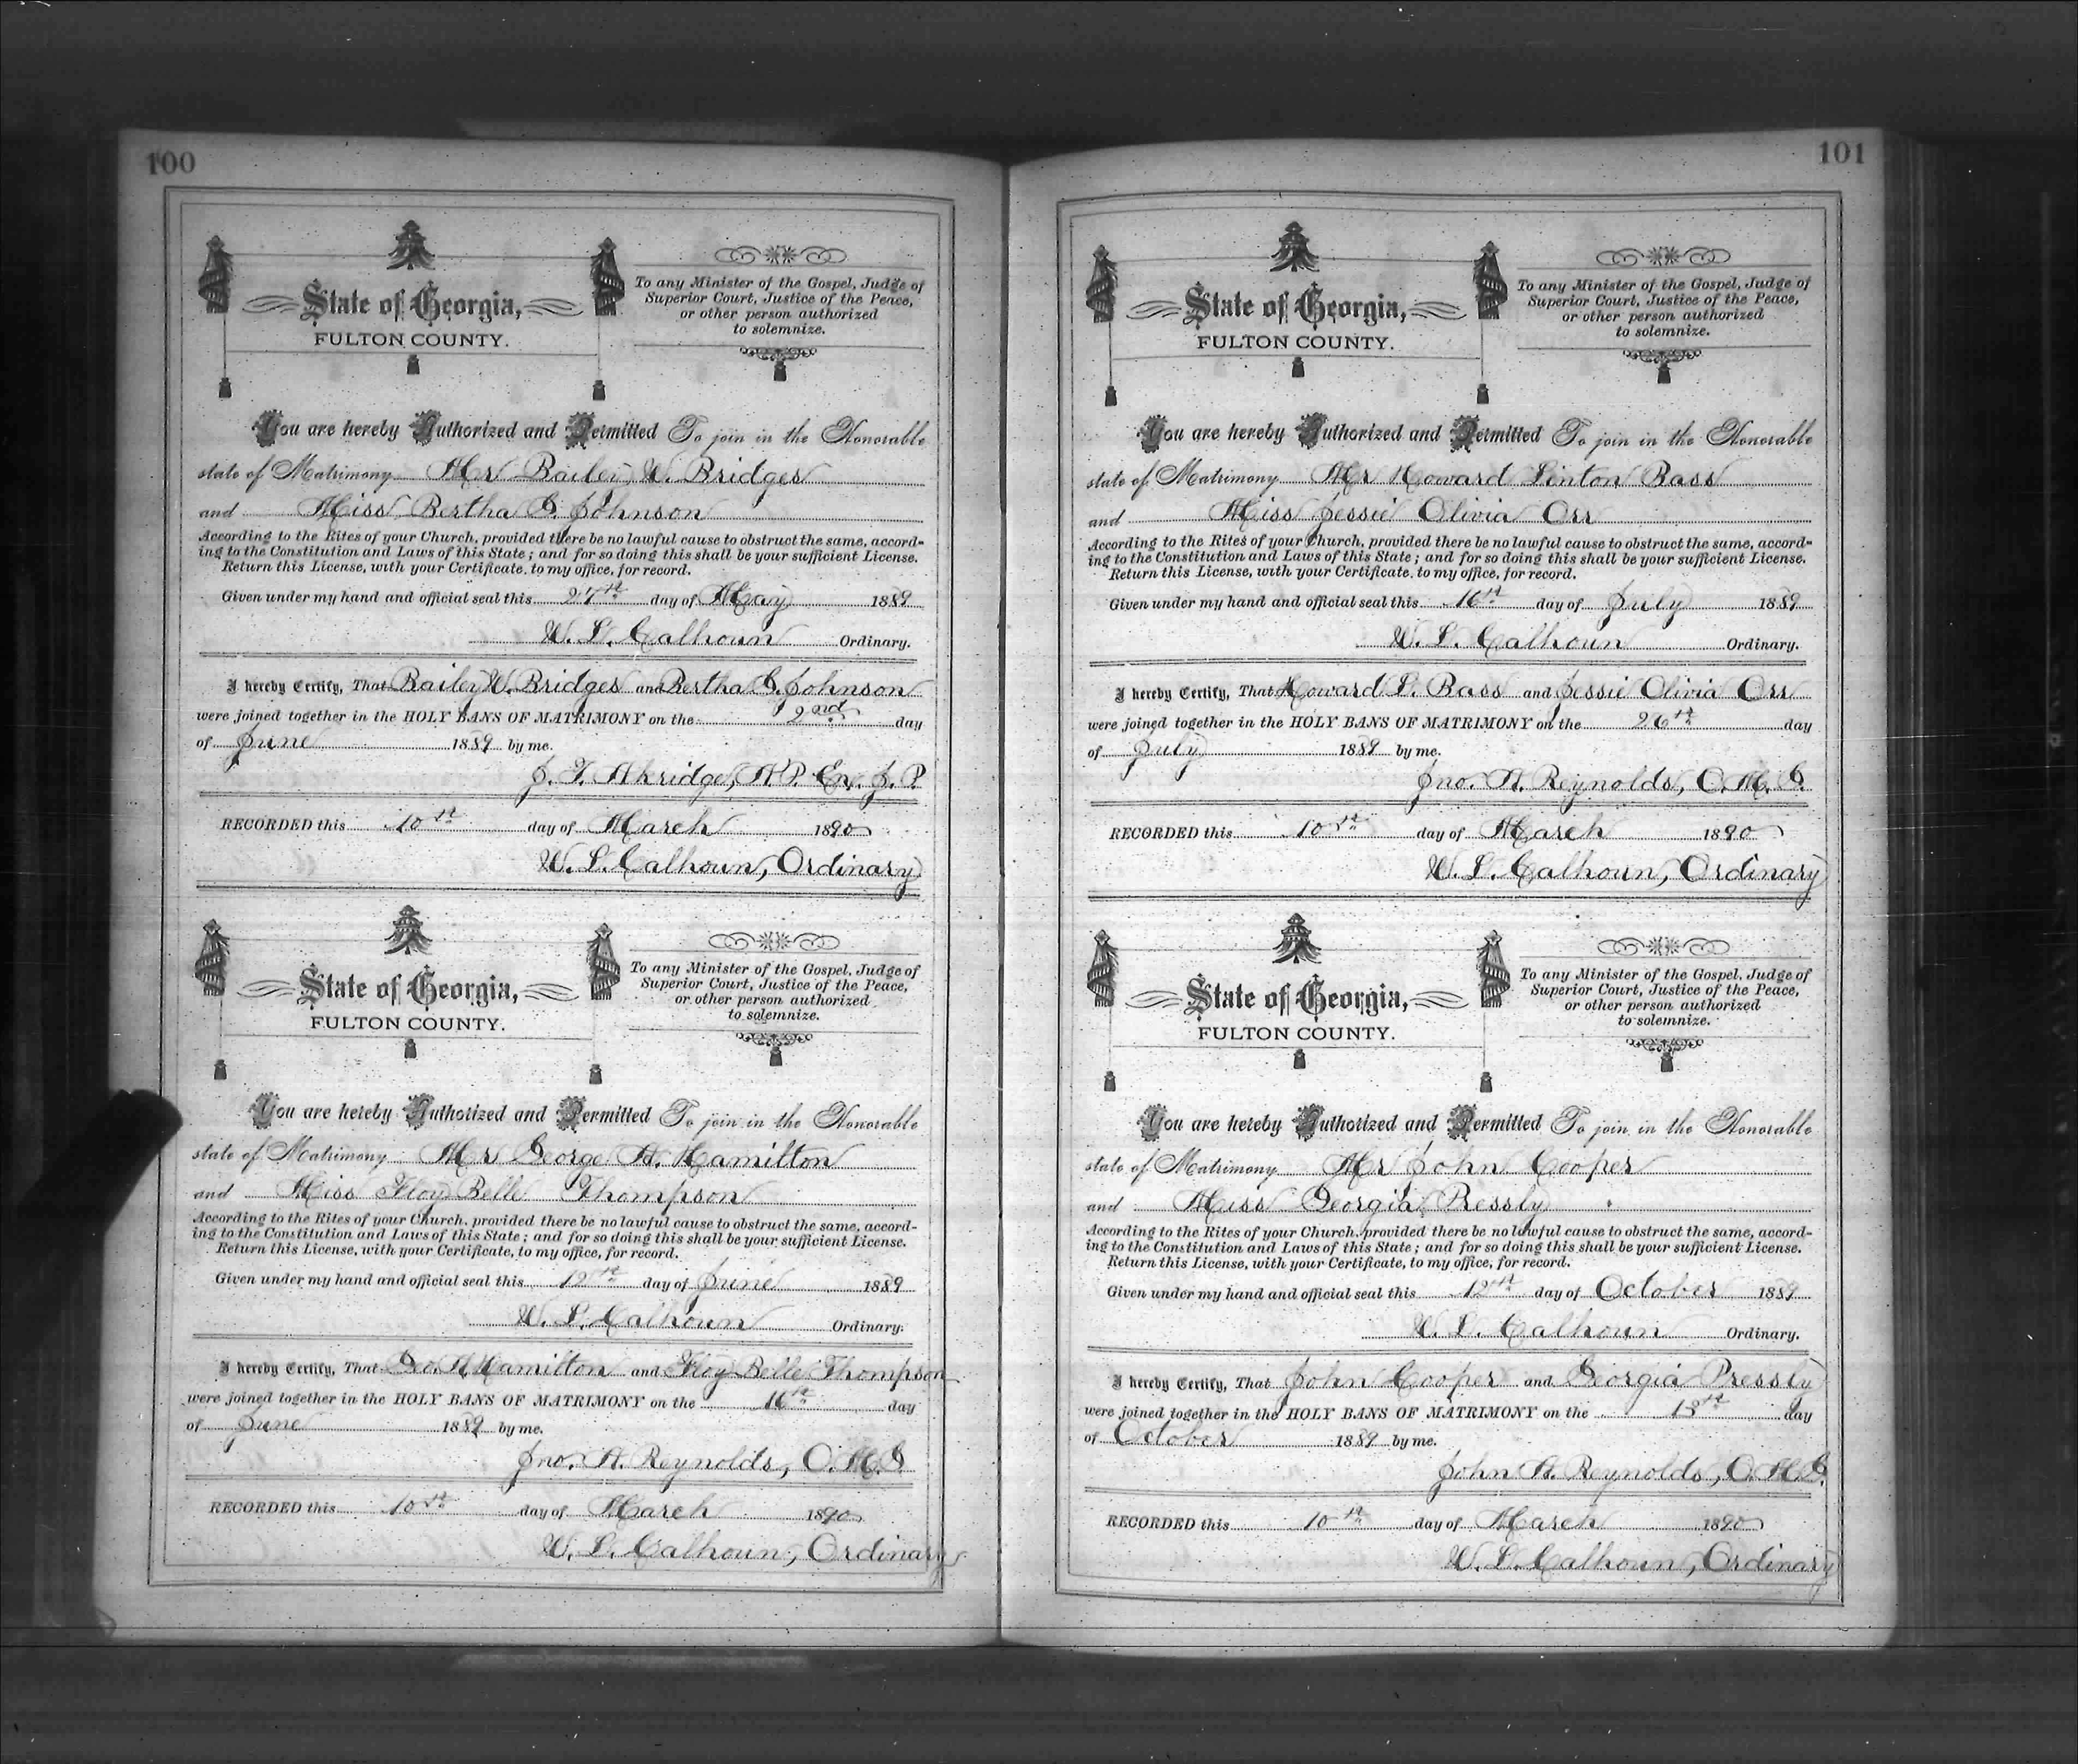 100
State of Georgia,
FULTON COUNTY.
To any Minister of the Gospel, Judge of
Superior Court, Justice of the Peace,
or other person authorized
to solemnize.
You are hereby Authorized and Permitted To join in the Honorable
state of Matrimony Mr Bailey W. Bridges
and Miss Bertha G. Johnson
According to the Rites of your Church, provided there be no lawful cause to obstruct the same, accord-
ing to the Constitution and Laws of this State; and for so doing this shall be your sufficient License.
Return this License, with your Certificate, to my office, for record.
Given under my hand and official seal this 27th day of May 1889
W. L. Calhoun Ordinary.
I hereby Certify, That Bailey W. Bridges and Bertha G. Johnson
were joined together in the HOLY BANS OF MATRIMONY on the 2nd day
of June 1889 by me.
J. T. Akridge, N.P. Ex. J. P.
RECORDED this 10th day of March 1890
W. L. Calhoun, Ordinary
State of Georgia,
FULTON COUNTY.
To any Minister of the Gospel, Judge of
Superior Court, Justice of the Peace,
or other person authorized
to solemnize.
You are hereby Authorized and Permitted To join in the Honorable
state of Matrimony Mr George H. Hamilton
and Miss Floy Belle Thompson
According to the Rites of your Church, provided there be no lawful cause to obstruct the same, accord-
ing to the Constitution and Laws of this State; and for so doing this shall be your sufficient License.
Return this License, with your Certificate, to my office, for record.
Given under my hand and official seal this 12th day of June 1889
W. L. Calhoun Ordinary.
I hereby Certify, That Geo. H Hamilton and Floy Belle Thompson
were joined together in the HOLY BANS OF MATRIMONY on the 16th day
of June 1889 by me.
Jno. A. Reynolds, O.M.G.
RECORDED this 10th day of March 1890
W. L. Calhoun, Ordinary
101
State of Georgia,
FULTON COUNTY.
To any Minister of the Gospel, Judge of
Superior Court, Justice of the Peace,
or other person authorized
to solemnize.
You are hereby Authorized and Permitted To join in the Honorable
state of Matrimony Mr Howard Linton Bass
and Miss Jessie Olivia Orr
According to the Rites of your Church, provided there be no lawful cause to obstruct the same, accord-
ing to the Constitution and Laws of this State; and for so doing this shall be your sufficient License.
Return this License, with your Certificate, to my office, for record.
Given under my hand and official seal this 16th day of July 1889
W. L. Calhoun Ordinary.
I hereby Certify, That Howard L. Bass and Jessie Olivia Orr
were joined together in the HOLY BANS OF MATRIMONY on the 26th day
of July 1889 by me.
Jno. A. Reynolds, O.M.G.
RECORDED this 10th day of March 1890
W. L. Calhoun, Ordinary
State of Georgia,
FULTON COUNTY.
To any Minister of the Gospel, Judge of
Superior Court, Justice of the Peace,
or other person authorized
to solemnize.
You are hereby Authorized and Permitted To join in the Honorable
state of Matrimony Mr John Cooper
and Miss Georgia Pressly
According to the Rites of your Church, provided there be no lawful cause to obstruct the same, accord-
ing to the Constitution and Laws of this State; and for so doing this shall be your sufficient License.
Return this License, with your Certificate, to my office, for record.
Given under my hand and official seal this 12th day of October 1889
W. L. Calhoun Ordinary.
I hereby Certify, That John Cooper and Georgia Pressly
were joined together in the HOLY BANS OF MATRIMONY on the 13th day
of October 1889 by me.
John A. Reynolds, O.M.G.
RECORDED this 10th day of March 1890
W. L. Calhoun, Ordinary